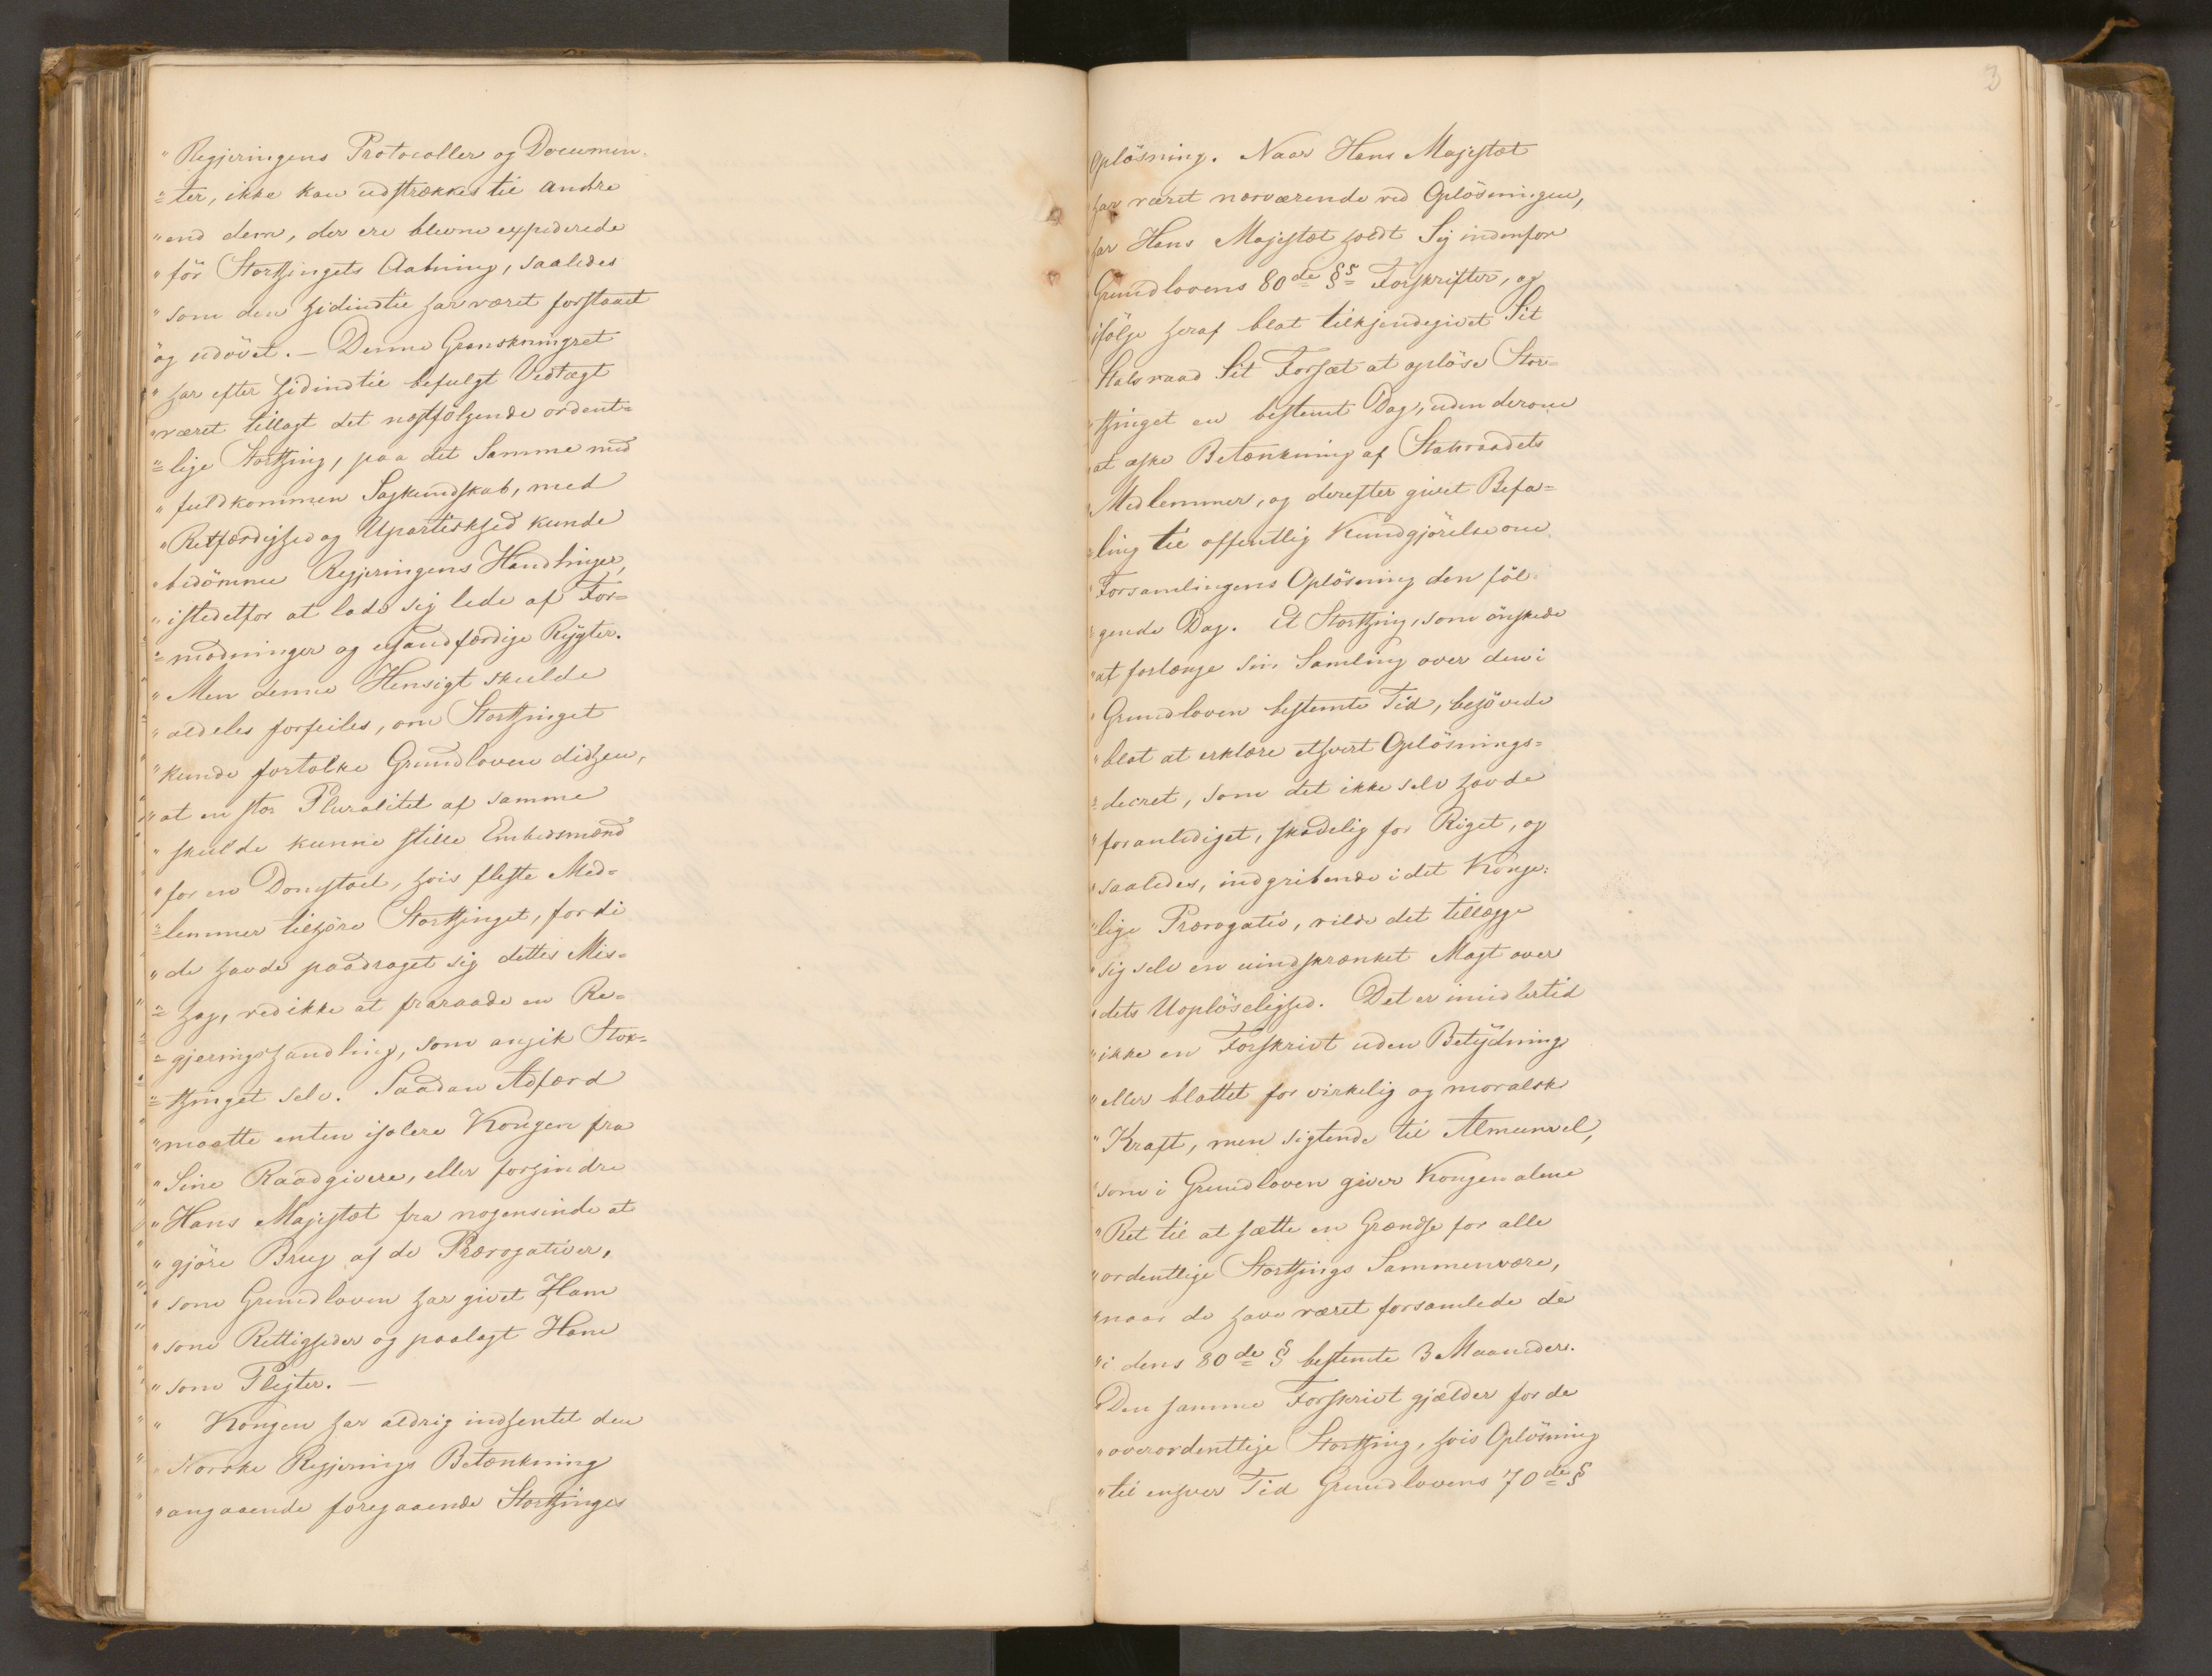 "Regjeringens Protocoller og Documen-
"ter, ikke kan udstrækkes til andre
"end dem, der ere blevne expederede
"för Storthingets Aabning, saaledes
"som den hidindtil har været forstaaet
"og udövet. — Denne Granskningsret
"har efter hidindtil befulgt Vedtægt
"været tillagt det næstfölgende ordent=
"lige Storthing, paa det Samme med
"fuldkommen Sagkundskab, med
"Retfærdighed og Upartiskhed kunde
"bedömme Regjeringens Handlinger,
"istedetfor at lade sig lede af For=
"modninger og usandfærdige Rygter.
"Men denne Hensigt skulde
"aldeles forfeiles, om Storthinget
"kunde fortolke Grundloven didhen,
"at en stor Pluralitet af samme
"skulde kunne stille Embedsmænd
"for en Domstoel, hvis fleste Med=
"lemmer tilhöre Storthinget, fordi
"de havde paadraget sig dettes Mis=
"hag, ved ikke at fraraade en Re=
"gjeringshandling, som angik Stor=
"thinget selv. Saadan Adfærd
"maatte enten isolere Kongen fra
"Sine Raadgivere, eller forhindre
"Hans Majestæt fra nogensinde at
"gjöre Brug af de Prærogativer,
"som Grundloven har givet Ham
"som Rettigheder og paalagt Ham
"som Pligter. —
"Kongen har aldrig indhentet den
"Norske Regjerings Betænkning
"angaaende foregaaende Storthinges
3
Oplösning. Naar Hans Majestæt
har været nærværende ved Oplösningen,
har Hans Majestæt holdt Sig indenfor
Grundlovens 80de §s Forskrifter, og
ifölge heraf blot tilkjendegivet Sit
Statsraad Sit Forsæt at oplöse Stor=
"thinget en bestemt Dag, uden derom
"at æske Betænkning af Statsraadets
"Medlemmer, og derefter givet Befa=
"ling til offentlig Kundgjörelse om
"Forsamlingens Oplösning den föl=
"gende Dag. Et Storthing, som önskede
"at forlænge sin Samling over den i
"Grundloven bestemte Tid, behövede
"blot at erklære ethvert Oplösnings=
"decret, som det ikke selv havde
"foranlediget, skadelig for Riget, og
"saaledes, indgribende i det Konge=
"lige Prærogativ, vilde det tillægge
"sig selv en uindskrænket Magt over
"dets Uoplöselighed. Det er imidlertid
"ikke en Forskrivt uden Betydning
"eller blottet for virkelig og moralsk
"Kraft, men sigtende til Almeenvel,
"som i Grundloven giver Kongen alene
"Ret til at sætte en Grændse for alle
"ordentlige Storthings Sammenvære,
"naar de have været forsamlede de
"i dens 80de § bestemte 3 Maaneder.
"Den samme Forskrivt gjælder for de
"overordentlige Storthing, hvis Oplösning
"til enhver Tid Grundlovens 70de §